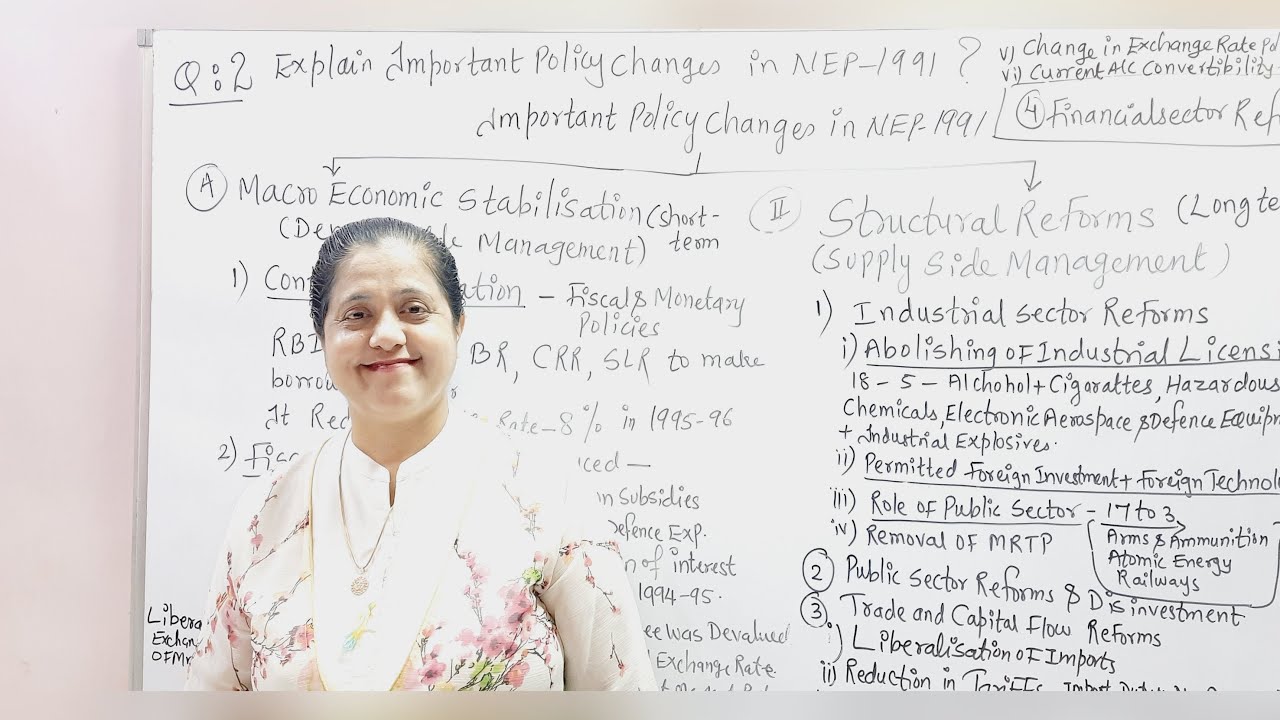 Q:2 Explain Important Policy Changes in NEP-1991?
Important Policy Changes in NEP-1991
v) Change in Exchange Rate
vi) Current A/C Convertibility
④ Financial sector
Ⓐ Macro Economic Stabilisation (short-
term
Management)
1)
ation - Fiscal & Monetary
Policies
RBI BR, CRR, SLR to make
It Rate-8% in 1995-96
2)
in Subsidies
Defence Exp.
of interest
1994-95.
was Devalued
Exchange Rate
Libera
Exchan
II Structural Reforms (Long te
(Supply Side Management)
1) Industrial sector Reforms
i) Abolishing of Industrial Licensi
18 - 5 - Alchohol + Cigarattes, Hazardous
Chemicals, Electronic Aerospace & Defence Equip
+ Industrial Explosives.
ii) Permitted Foreign Investment + Foreign Technol
iii) Role of Public Sector - 17 to 3
Arms & Ammunition
Atomic Energy
Railways
iv) Removal OF MRTP
② Public Sector Reforms & Disinvestment
③ Trade and Capital Flow Reforms
i) Liberalisation of Imports
ii) Reduction in Tariffs,